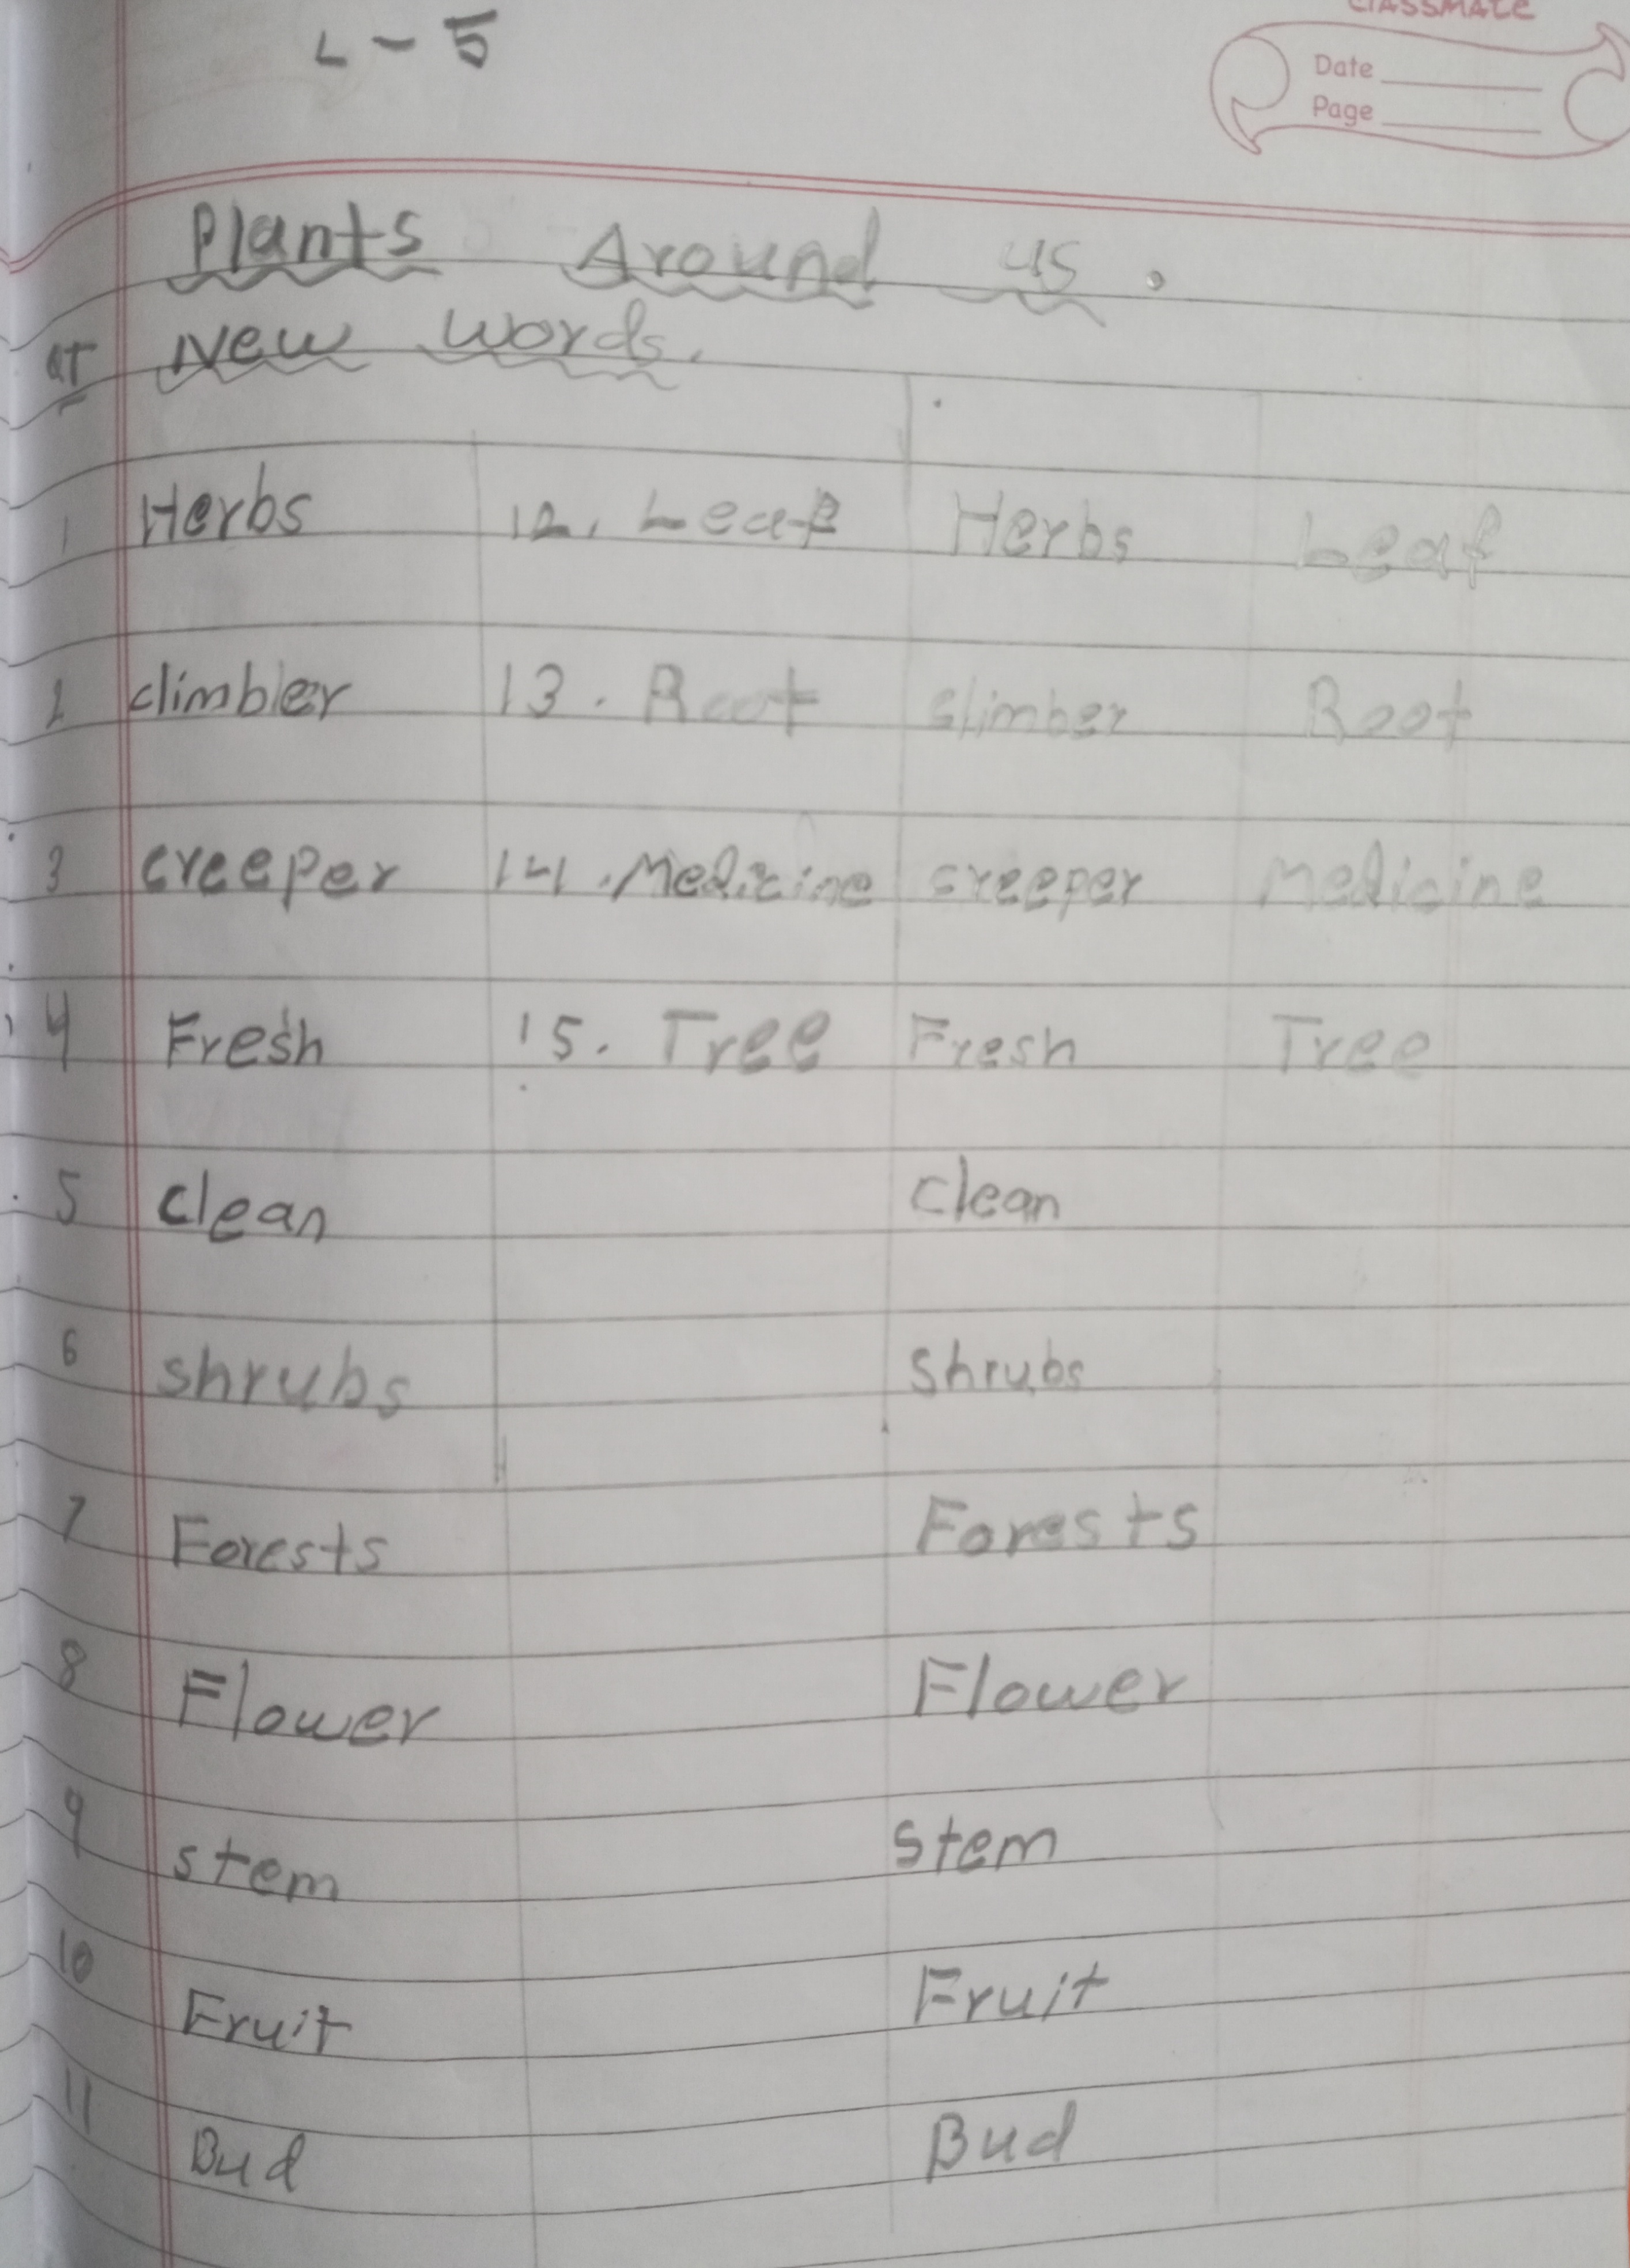 L - 5
classmate
Date
Page
Plants Around us.
New words.
1 Herbs 12. Leaf Herbs Leaf
2 climber 13. Root climber Root
3 creeper 14. Medicine creeper Medicine
4 Fresh 15. Tree Fresh Tree
5 clean clean
6 shrubs shrubs
7 Forests Forests
8 Flower Flower
9 stem stem
10 Fruit Fruit
11 Bud Bud